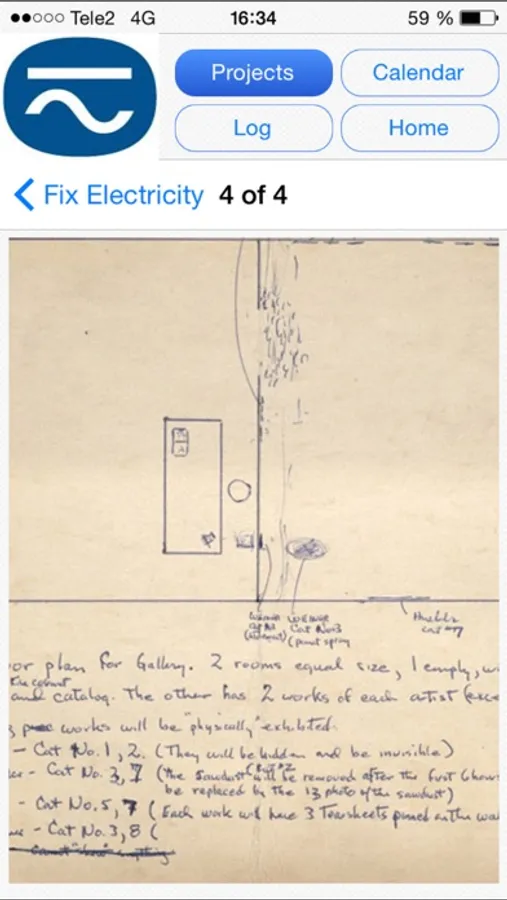 Tele2 4G 16:34 59 %
Projects
Calendar
Log
Home
Fix Electricity 4 of 4
Cat No3
or plan for Gallery. 2 rooms equal size, 1 empty, w
and catalog. The other has 2 works of each artist (exce
works will be "physically" exhibited.
- Cat No. 1, 2. (They will be hidden and be invisible)
- Cat No. 3, 7 (the sawdust will be removed after the first 6 hours
be replaced by the 13 photo of the sawdust)
- Cat No. 5, 7 (Each work will have 3 Tearsheets pinned on the wa
- Cat No. 3, 8 (